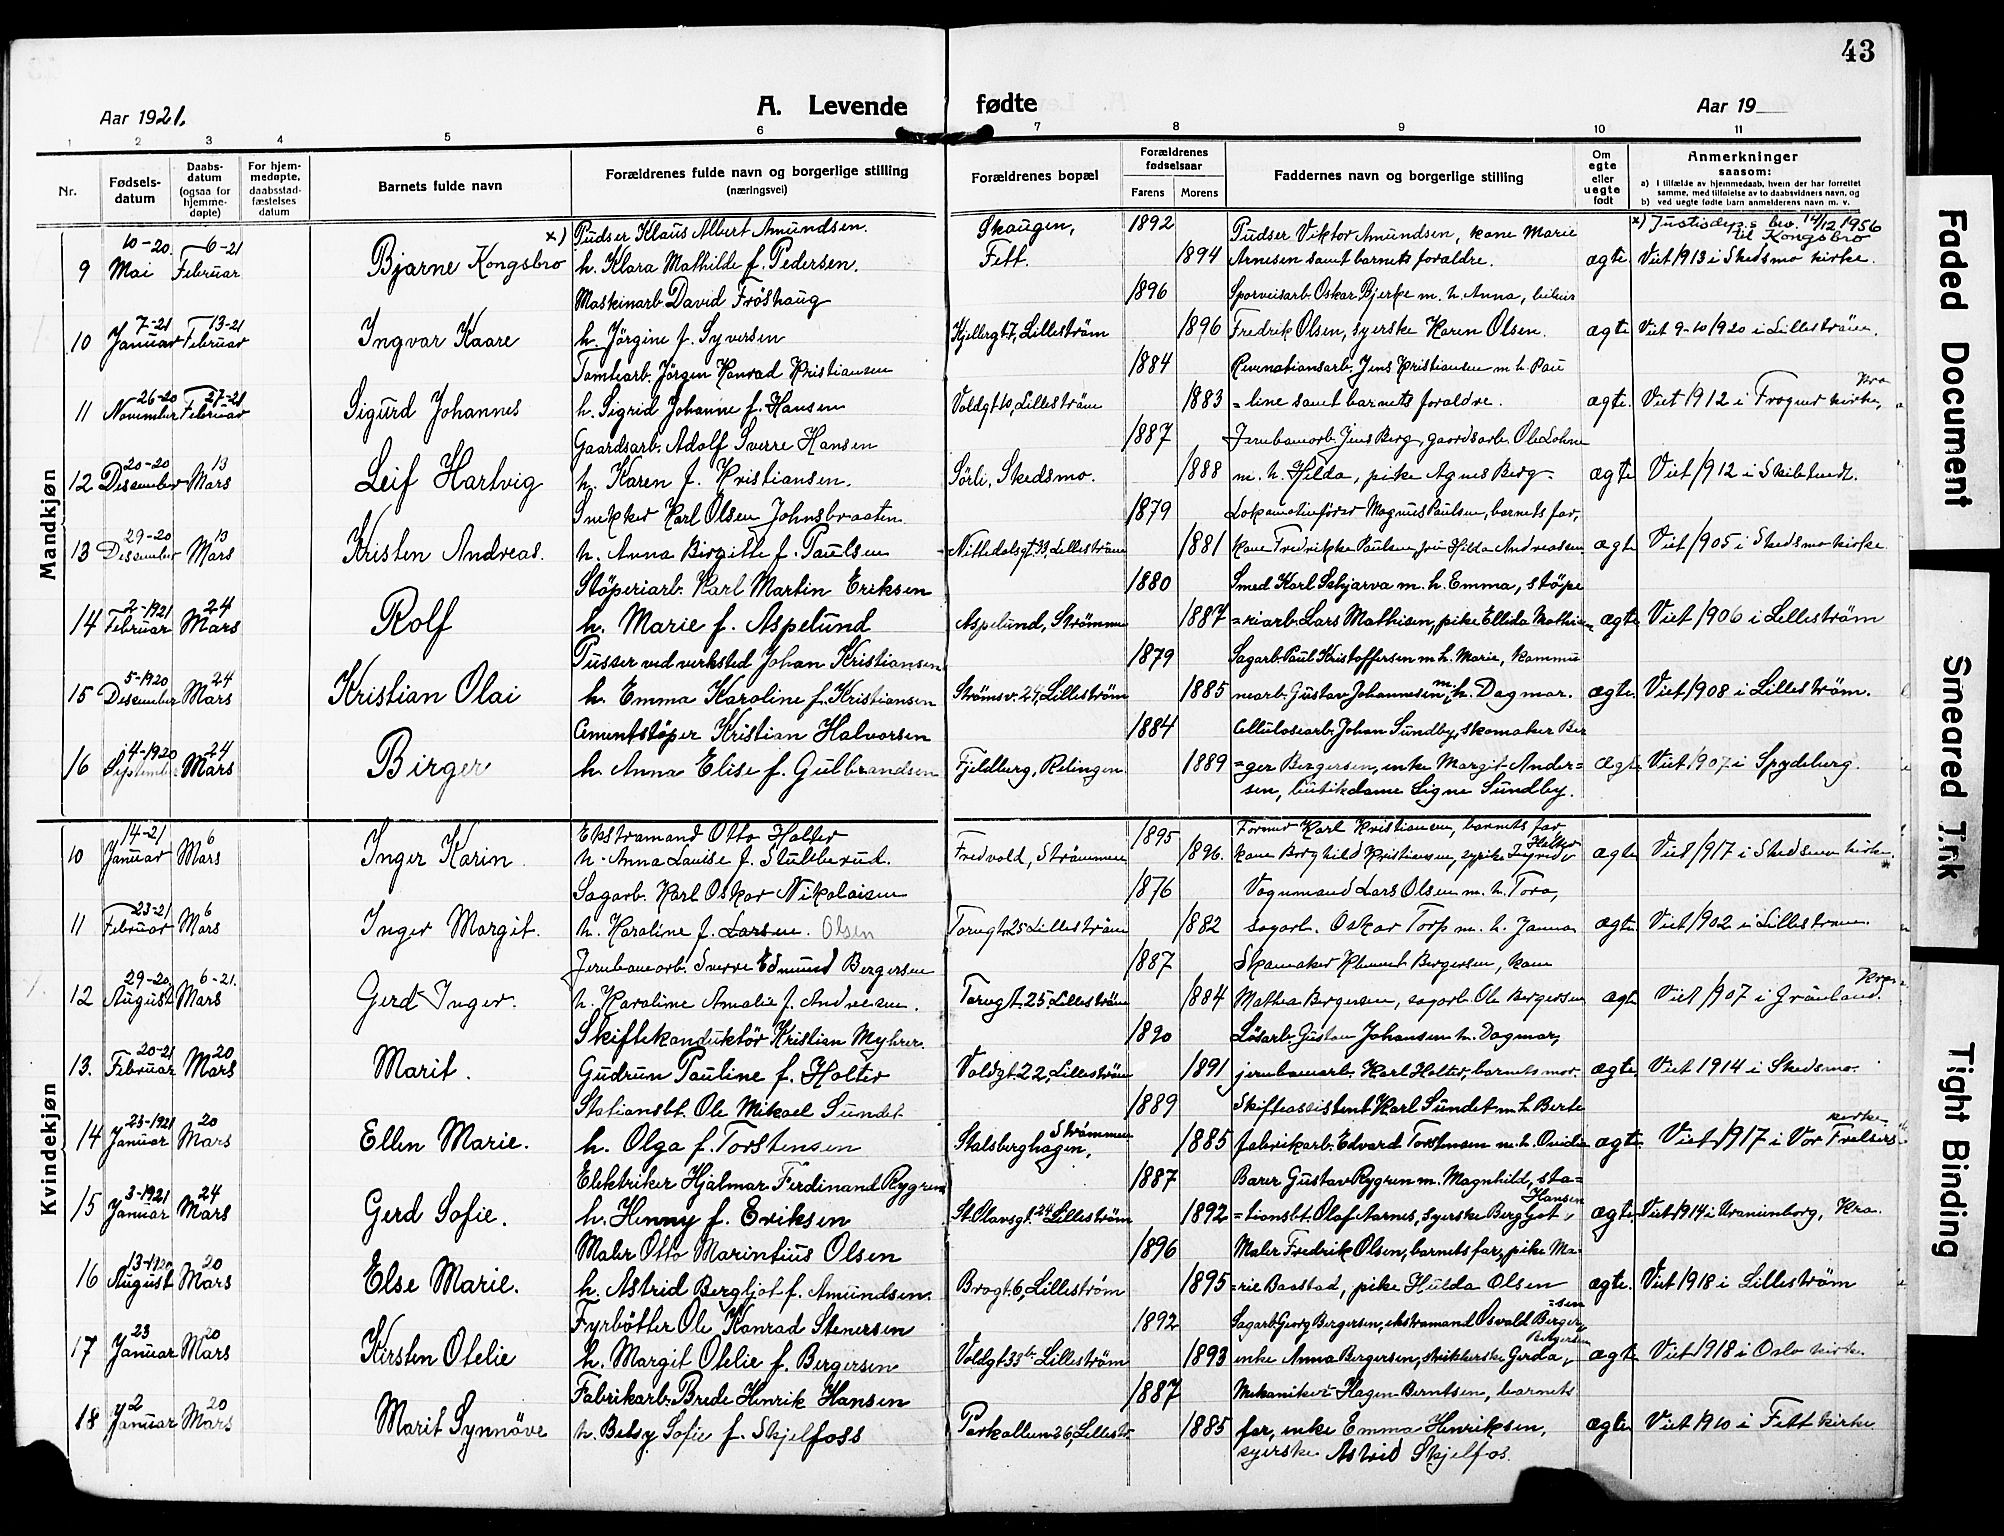 43
Aar 1921.
A. Levende fødte
Aar 19
1 2 3 4 5 6 7 8 9 10 11
Nr.
Fødsels-
datum
Daabs-
datum
(ogsaa for
hjemme-
døpte)
For hjem-
medøpte,
daabsstad-
fæstelses
datum
Barnets fulde navn
Forældrenes fulde navn og borgerlige stilling
(næringsvei)
Forældrenes bopæl
Forældrenes
fødselsaar
Farens Morens
Faddernes navn og borgerlige stilling
Om
egte
eller
uegte
født
Anmerkninger
saasom:
a) I tilfælde av hjemmedaab, hvem der har forrettet
samme, med tilføielse av to daabsvidners navn, og
b) ved uegte født barn anmelderens navn m. v.
Mandkjøn
x) Pudser Klaus Albert Amundsen. Skaugen, 1892 Pudser Viktor Amundsen, kone Marie x) Justisdep.s bev. 14/12 1956
10-20 6-21 til Kongsbro
9 Mai Februar Bjarne Kongsbro h. Klara Mathilde f. Pedersen. Fett. 1894 Arnesen samt barnets foraldre. ægte. Viet 1913 i Skedsmo kirke.
Maskinarb. David Fröshaug 1896 Sporveisarb. Oskar Bjerke m. h. Anna,
7-21 13-21
10 Januar Februar Ingvar Kaare h. Jörgine f. Syversen Kjellergt 7, Lilleström 1896 Fredrik Olsen, syerske Karen Olsen. ægte Viet 9-10/1920 i Lilleström.
Tomtearb. Jörgen Konrad Kristiansen 1884 Jens Kristiansen m h Pau
26-20 27-21 Kra
11 November Februar Sigurd Johannes h. Sigrid Johanne f. Hansen Voldgt 10, Lilleström 1883 =line samt barnets foraldre. ægte. Viet 1912 i Frogner kirke,
Gaardsarb. Adolf Sverre Hansen 1887 Jernbanearb. Jens Berg, gaardsarb. Ole
20-20 13
12 Desember Mars Leif Hartvig h. Karen f. Kristiansen. Sörli, Skedsmo. 1888 m. h. Hilda, pike Agnes Berg. ægte Viet 1912 i Skibtvedt.
Snekker Karl Olsen Johnsbraaten 1879 Lokomotivförer Magnus Paulsen, barnets far,
29-20 13
13 Desember Mars Kristen Andreas. h. Anna Birgitte f. Paulsen Nittedalsgt. 33, Lilleström 1881 kone Fredrikke Paulsen, Hilda Andreasen ægte Viet 1905 i Skedsmo kirke
Stöperiarb. Karl Martin Eriksen 1880 Smed Karl m. h. Emma, støpe
2-1921 24
14 Februar Mars Rolf h. Marie f. Aspelund Aspelund, Strömmen 1887 =riarb. Lars Mathisen, pike Ellida Mathisen ægte Viet 1906 i Lilleström
Pusser ved verksted Johan Kristiansen 1879 Sagarb. Paul Kristoffersen m. h. Marie, kommu
5-1920 24
15 Desember Mars Kristian Olai h. Emma Karoline f. Kristiansen Strömsv. 24, Lilleström 1885 nearb. Gustav Johannesen m. h. Dagmar. ægte. Viet 1908 i Lilleström.
Cementstøper Kristian Halvorsen 1884 Cellulosearb. Johan Sundby, skomaker Bir
4-1920 24
16 September Mars Birger h. Anna Elise f. Gulbrandsen Fjeldberg, Relingen 1889 =ger Bergersen, enke Margit Ander=
sen, butikdame Signe Sundby. ægte Viet 1907 i Spydeberg.
Kvindekjøn
14-21 6 Ekstramand Otto Holter 1895 Former Karl Kristiansen, barnets far
10 Januar Mars Inger Karin h. Anna Louise f. Stubberud. Fredvold, Strömmen 1896. kone Borghild Kristiansen, Holter ægte Viet 1917 i Skedsmo kirke.
Sagarb. Karl Oskar Nikolaisen 1876 Vognmand Lars Olsen m. h. Tora,
23-21 6
11 Februar Mars Inger Margit. h. Karoline f. Larsen. Olsen Torvgt. 25 Lilleström 1882 sagarb. Oskar Torp m. h. Janna ægte Viet 1902 i Lilleström.
Jernbanearb. Sverre Edmund Bergersen 1887 Skomaker Klement Bergersen, kone
29-20 6-21. Kra
12 August Mars Gerd Inger. h. Karoline Amalie f. Andresen. Torvgt. 25, Lilleström 1884 Mathea Bergersen, sagarb. Ole Bergersen ægte Viet 1907 i Grönland.
Skiftekonduktör Kristian Myhrer. 1890 Løsarb. Gustav Johansen h. Dagmar,
20-21 20
13. Februar Mars Marit. Gudrun Pauline f. Holter Voldgt. 22, Lilleström 1891 jernbanearb. Karl Holter, barnets mor. ægte. Viet 1914 i Skedsmo.
Stationsbt. Ole Mikael Sundet 1889 Skifteassistent Karl Sundet m. h. Berte
23-1921 20 Strömmen kirke
14 Januar Mars Ellen Marie. h. Olga f. Torstensen Stalsberghagen, 1885 fabrikarb. Edvard Torstensen m. h. Ovidia ægte. Viet 1917 i Vor Frelsers
Elektriker Hjalmar Ferdinand Rygren 1887 Barer Gustav Rygren m. Magnhild, sta=
3-1921 24 Hansen
15 Januar Mars Gerd Sofie. h. Henny f. Eriksen St. Olavsgt. 24 Lilleström 1892 =tionsbt. Olaf Aarnes, syerske Bergljot ægte. Viet 1914 i Uranienborg, Kra.
Maler Otto Marintius Olsen 1896 Maler Fredrik Olsen, barnets far, pike Ma-
13-1920 20
16 August Mars Else Marie. h. Astrid Bergljot f. Amundsen. Brogt. 6, Lilleström 1895 =rie Baastad, pike Hulda Olsen ægte. Viet 1918 i Lilleström
Fyrbötter Ole Konrad Stenersen 1892 Sagarb. Georg Bergersen, ekstramand Osvald Berger=sen
23 20 Bergersen
17 Januar Mars Kirsten Otelie h. Margit Otelie f. Bergersen Voldgt. 33b Lilleström 1893 enke Anna Bergersen, strikkerske Gerda ægte Viet 1918 i Oslo kirke.
Fabrikarb. Brede Henrik Hansen 1887 Mekaniker Hagen Berntsen, barnets
2 20
18 Januar Mars Marit Synnöve h. Betsy Sofie f. Skjelfoss Parkalleen 26, Lillestr 1885 far, enke Emma Henriksen, ægte Viet 1910 i Fett kirke.
syerske Astrid Skjelfos.
Faded Document
Smeared Trk
Tight Binding